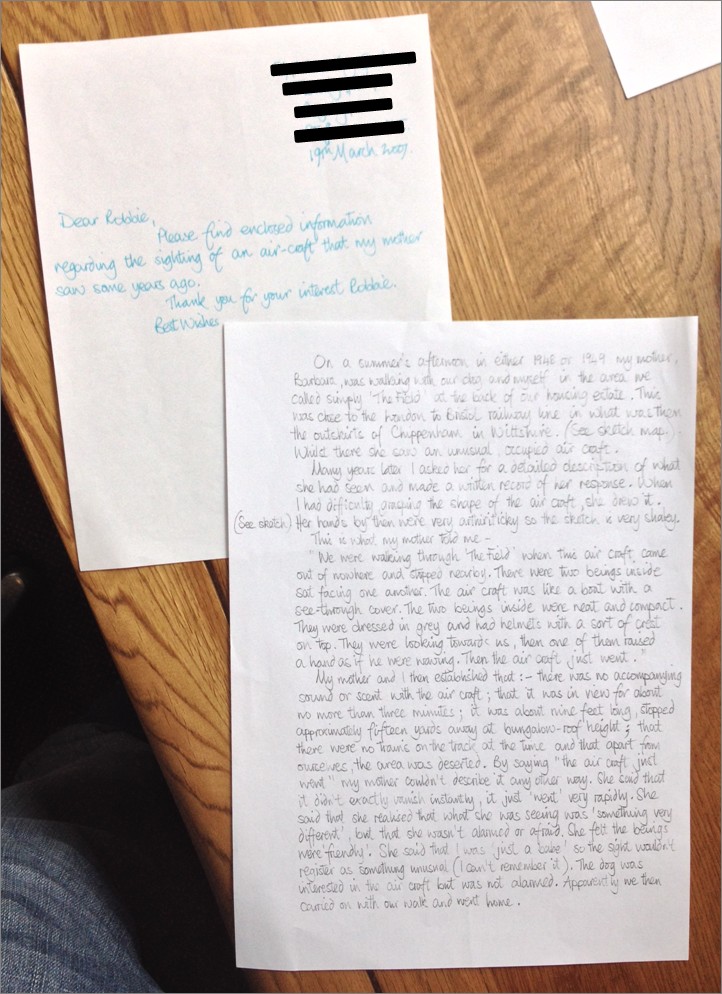 19th March 2007.
Dear Robbie,
Please find enclosed information
regarding the sighting of an air-craft that my mother
saw some years ago.
Thank you for your interest Robbie.
Best Wishes
On a summer's afternoon in either 1948 or 1949 my mother,
Barbara, was walking with our dog and myself in the area we
called simply 'The Field' at the back of our housing estate. This
was close to the London to Bristol railway line in what was then
the outskirts of Chippenham in Wiltshire. (See sketch map.)
Whilst there she saw an unusual, occupied air craft.
Many years later I asked her for a detailed description of what
she had seen and made a written record of her response. When
I had difficulty grasping the shape of the air craft, she drew it.
(See sketch) Her hands by then were very arthriticky so the sketch is very shakey.
This is what my mother told me -
"We were walking through 'The Field' when this air craft came
out of nowhere and stopped nearby. There were two beings inside
sat facing one another. The air craft was like a boat with a
see-through cover. The two beings inside were neat and compact.
They were dressed in grey and had helmets with a sort of crest
on top. They were looking towards us, then one of them raised
a hand as if he were waving. Then the air craft just went."
My mother and I then established that :- there was no accompanying
sound or scent with the air craft; that it was in view for about
no more than three minutes; it was about nine feet long, stopped
approximately fifteen yards away at bungalow-roof height; that
there were no trains on the track at the time and that apart from
ourselves, the area was deserted. By saying "the air craft just
went" my mother couldn't describe it any other way. She said that
it didn't exactly vanish instantly, it just 'went' very rapidly. She
said that she realised that what she was seeing was 'something very
different', but that she wasn't alarmed or afraid. She felt the beings
were 'friendly'. She said that I was 'just a babe' so the sight wouldn't
register as something unusual (I can't remember it). The dog was
interested in the air craft but was not alarmed. Apparently we then
carried on with our walk and went home.